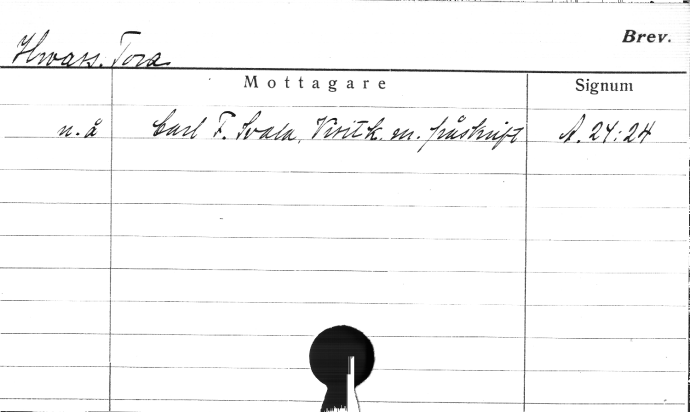 Brev.
Hwass. Tora
Mottagare Signum
n.å Carl F. Svala, Visitk. m. påskrift A. 24:24